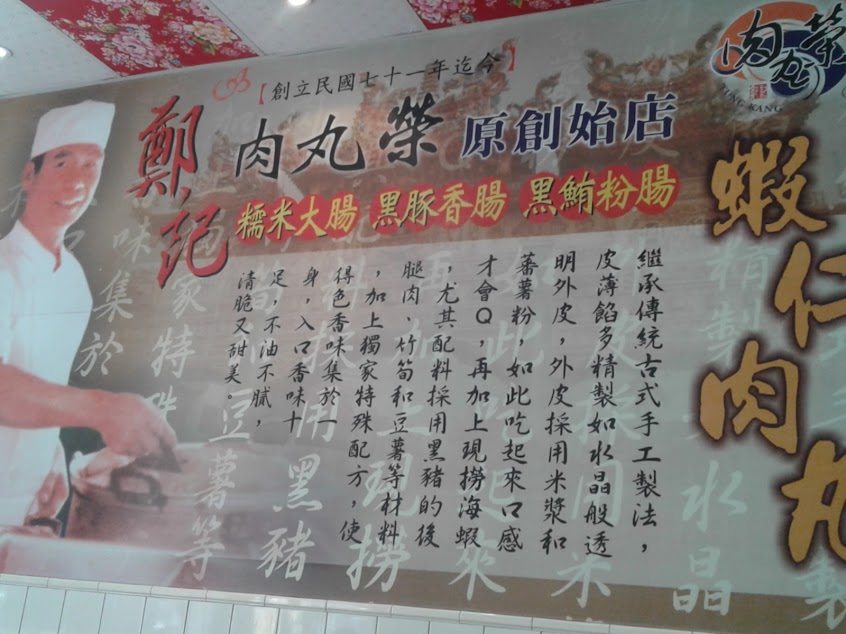 【創立民國七十一年迄今】
鄭記
肉丸榮 原創始店
糯米大腸 黑豚香腸 黑鮪粉腸
蝦仁
肉丸
繼承傳統古式手工製法，
皮薄餡多精製如水晶般透
明外皮，外皮採用米漿和
蕃薯粉，如此吃起來口感
才會Q，再加上現撈海蝦
，尤其配料採用黑豬的後
腿肉、竹筍和豆薯等材料
，加上獨家特殊配方，使
得色香味集於一
身，入口香味十
足，不油不膩，
清脆又甜美。
肉丸榮